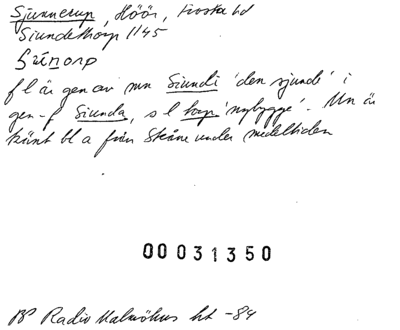 Sjunnerup, Höör, Frosta hd
Siundethorp 1145
Súnorp
f l är gen av mn Siundi 'den sjunde' i
gen-f Siunda, s l torp 'nybygge'. Mn är
känt bl a från Skåne under medeltiden
00031350
BP Radio Malmöhus ht -84